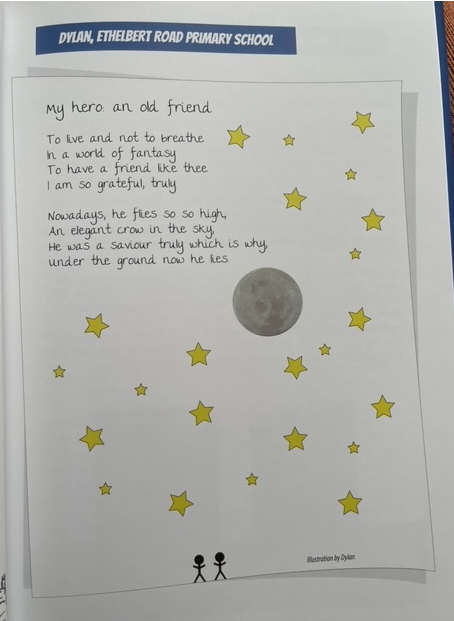 DYLAN, ETHELBERT ROAD PRIMARY SCHOOL
My hero: an old friend
To live and not to breathe
In a world of fantasy
To have a friend like thee
I am so grateful, truly
Nowadays, he flies so so high,
An elegant crow in the sky,
He was a saviour truly which is why,
under the ground now he lies
Illustration by Dylan